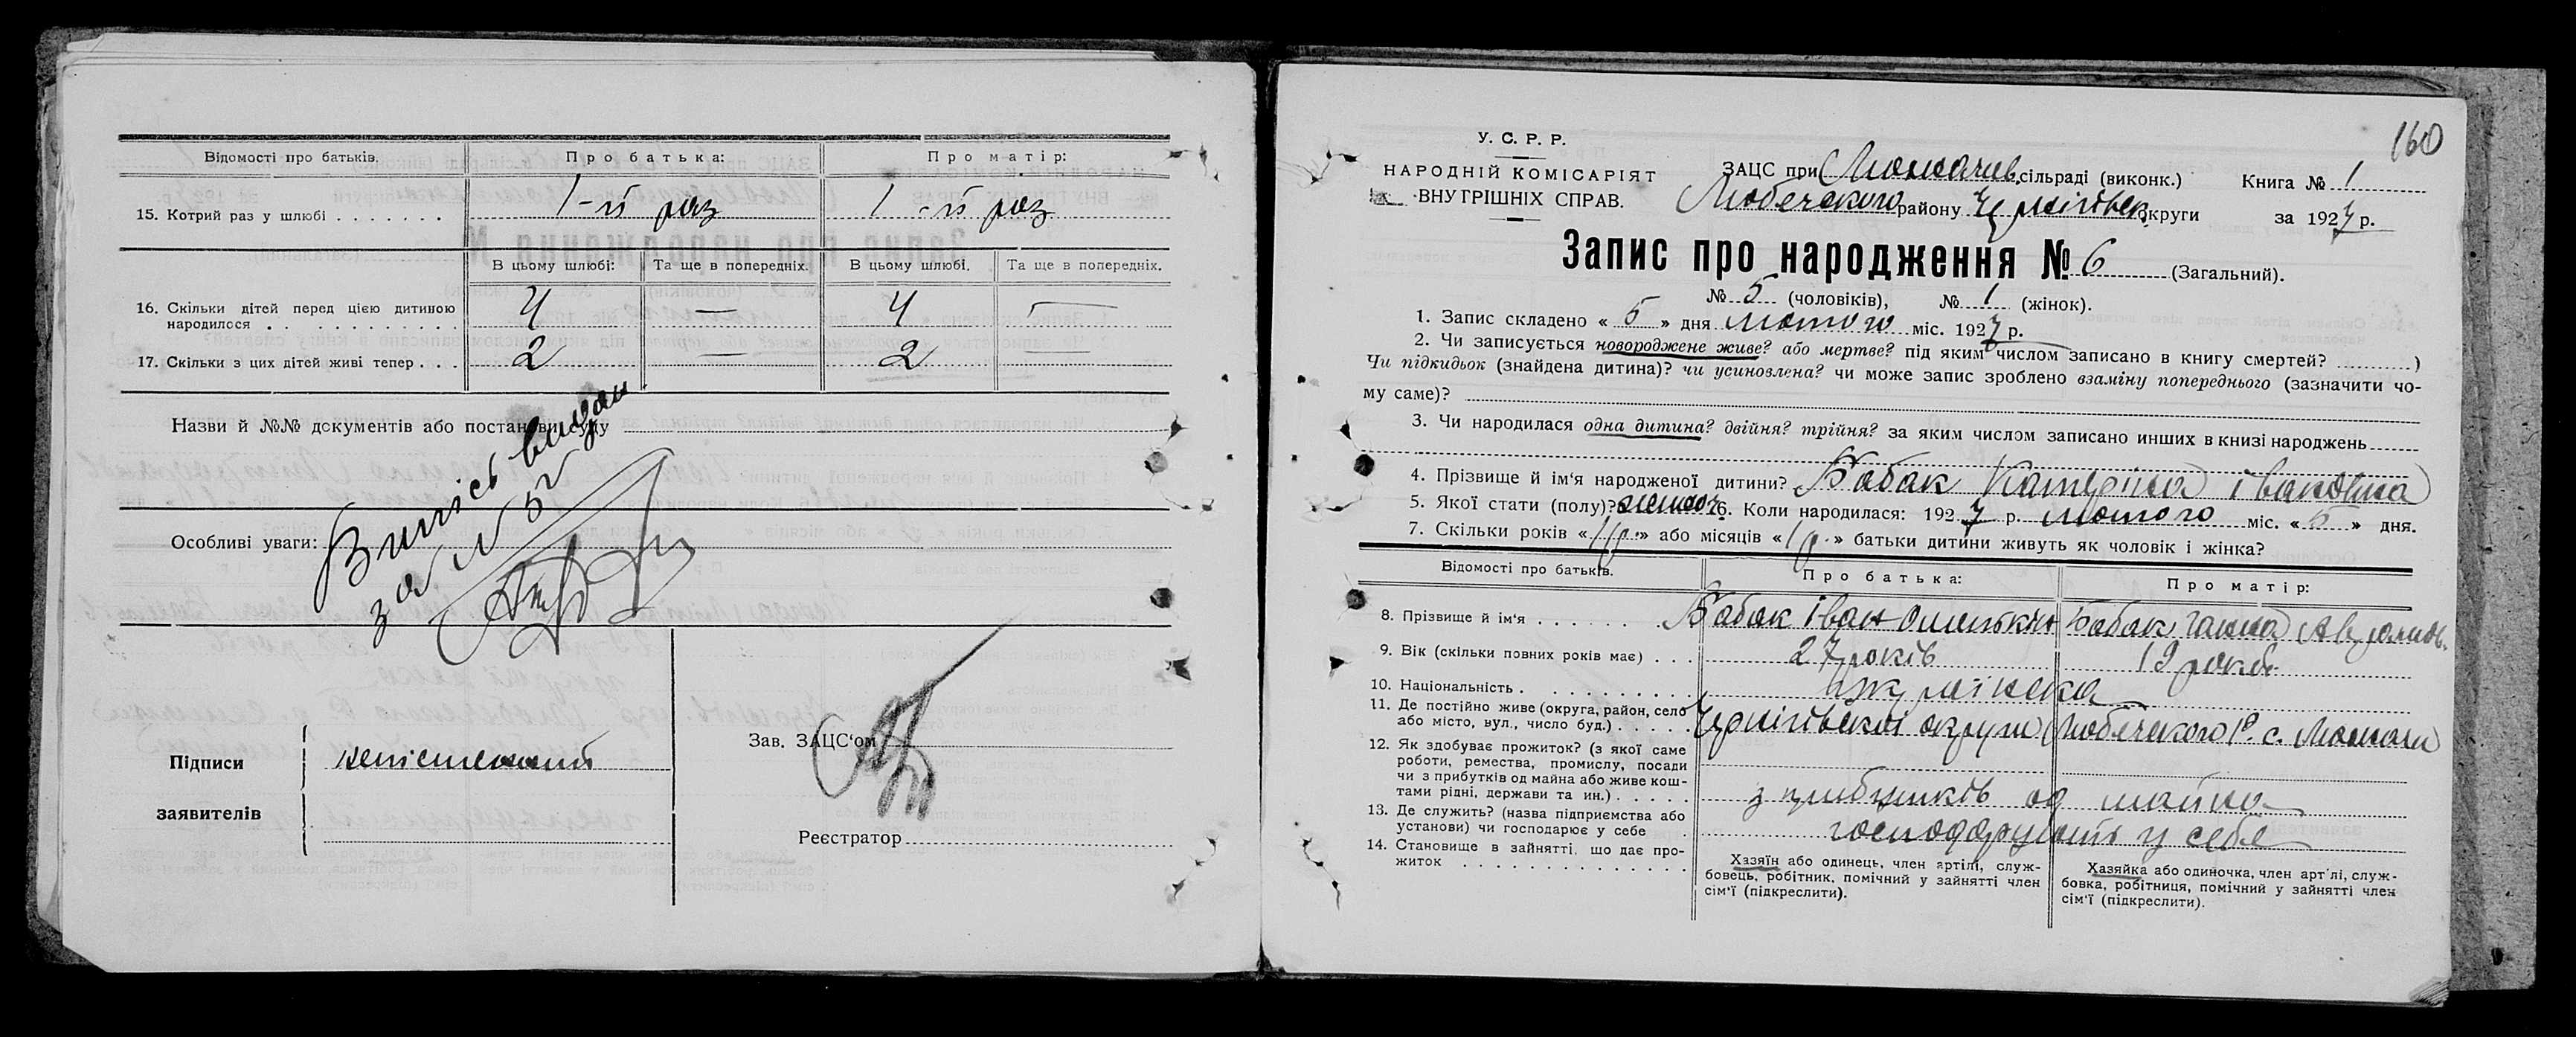 Відомості про батьків.
Про батька:
Про матір:
15. Котрий раз у шлюбі
1-й раз
1-й раз
В цьому шлюбі:
Та ще в попередніх.
В цьому шлюбі.
Та ще в попередніх.
16. Скільки дітей перед цією дитиною
народилося
4 — 4 —
17. Скільки з цих дітей живі тепер
2 — 2 —
Назви й №№ документів або постанови суду
Випісь видан
за № 52
Особливі уваги:
Підписи
заявителів
неписьменний
Зав. ЗАЦС'ом
Реєстратор
160
У. С. Р. Р.
НАРОДНІЙ КОМІСАРІЯТ
ВНУТРІШНІХ СПРАВ.
ЗАЦС при сільраді (виконк.)
Любечского району Чернігівськ. округи
Книга № 1
за 1927 р.
Запис про народження № 6 (Загальний).
№ 5 (чоловіків), № 1 (жінок).
1. Запис складено « 5 » дня лютого міс. 1927 р.
2. Чи записується новороджене живе? або мертве? під яким числом записано в книгу смертей? )
Чи підкидьок (знайдена дитина)? чи усиновлена? чи може запис зроблено взаміну попереднього (зазначити чо-
му саме)?
3. Чи народилася одна дитина? двійня? трійня? за яким числом записано инших в книзі народжень
4. Прізвище й ім'я народженої дитини? Бабак Катеріна Івановна
5. Якої стати (полу)? жіноч. 6. Коли народилася: 1927 р. лютого міс. « 5 » дня.
7. Скільки років « » або місяців « » батьки дитини живуть як чоловік і жінка?
Відомості про батьків.
Про батька:
Про матір:
8. Прізвище й ім'я
Бабак Іван
Бабак Ганна
9. Вік (скільки повних років має)
27 років
19 років
10. Національність
11. Де постійно живе (округа, район, село
або місто, вул., число буд.)
Чернігівської округи Любечского р. с.
12. Як здобуває прожиток? (з якої саме
роботи, ремества, промислу, посади
чи з прибутків од майна або живе кош-
тами рідні, держави та ин.)
з прибутків од майна
13. Де служить? (назва підприємства або
установи) чи господарює у себе
господарюють у себе
14. Становище в зайнятті, що дає про-
житок
Хазяїн або одинець, член артілі, служ-
бовець, робітник, помічний у зайнятті член
сім'ї (підкреслити).
Хазяйка або одиночка, член арт'лі, служ-
бовка, робітниця, помічний у зайнятті член
сім'ї (підкреслити).